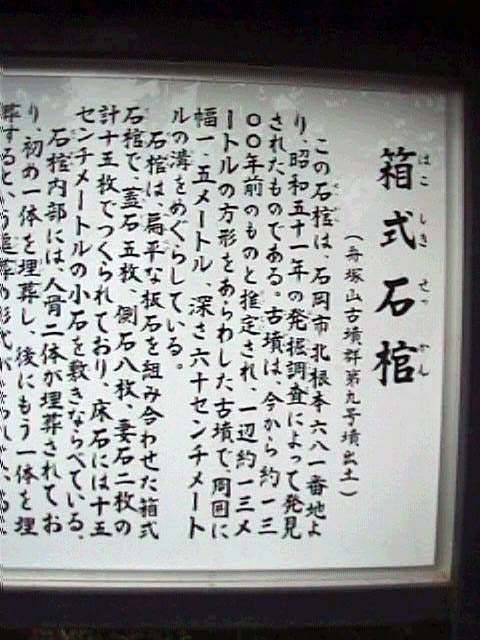 箱式石棺
はこしきせっかん
(舟塚山古墳群第九号墳出土)
この石棺は、石岡市北根本六八一番地よ
り、昭和五十一年の発掘調査によって発見
されたものである。古墳は、今から約一三
〇〇年前のものと推定され、一辺約一三メ
ートルの方形をあらわした古墳で、周囲に
幅一.五メートル、深さ六十センチメート
ルの溝をめぐらしている。
石棺は、扁平な板石を組み合わせた箱式
石棺で、蓋石五枚、側石八枚、妻石二枚の
計十五枚でつくられており、床石には十五
センチメートルの小石を敷きならべている。
石棺内部には、人骨二体が埋葬されてお
り、初め一体を埋葬し、後にもう一体を埋
葬するという追葬の形式が